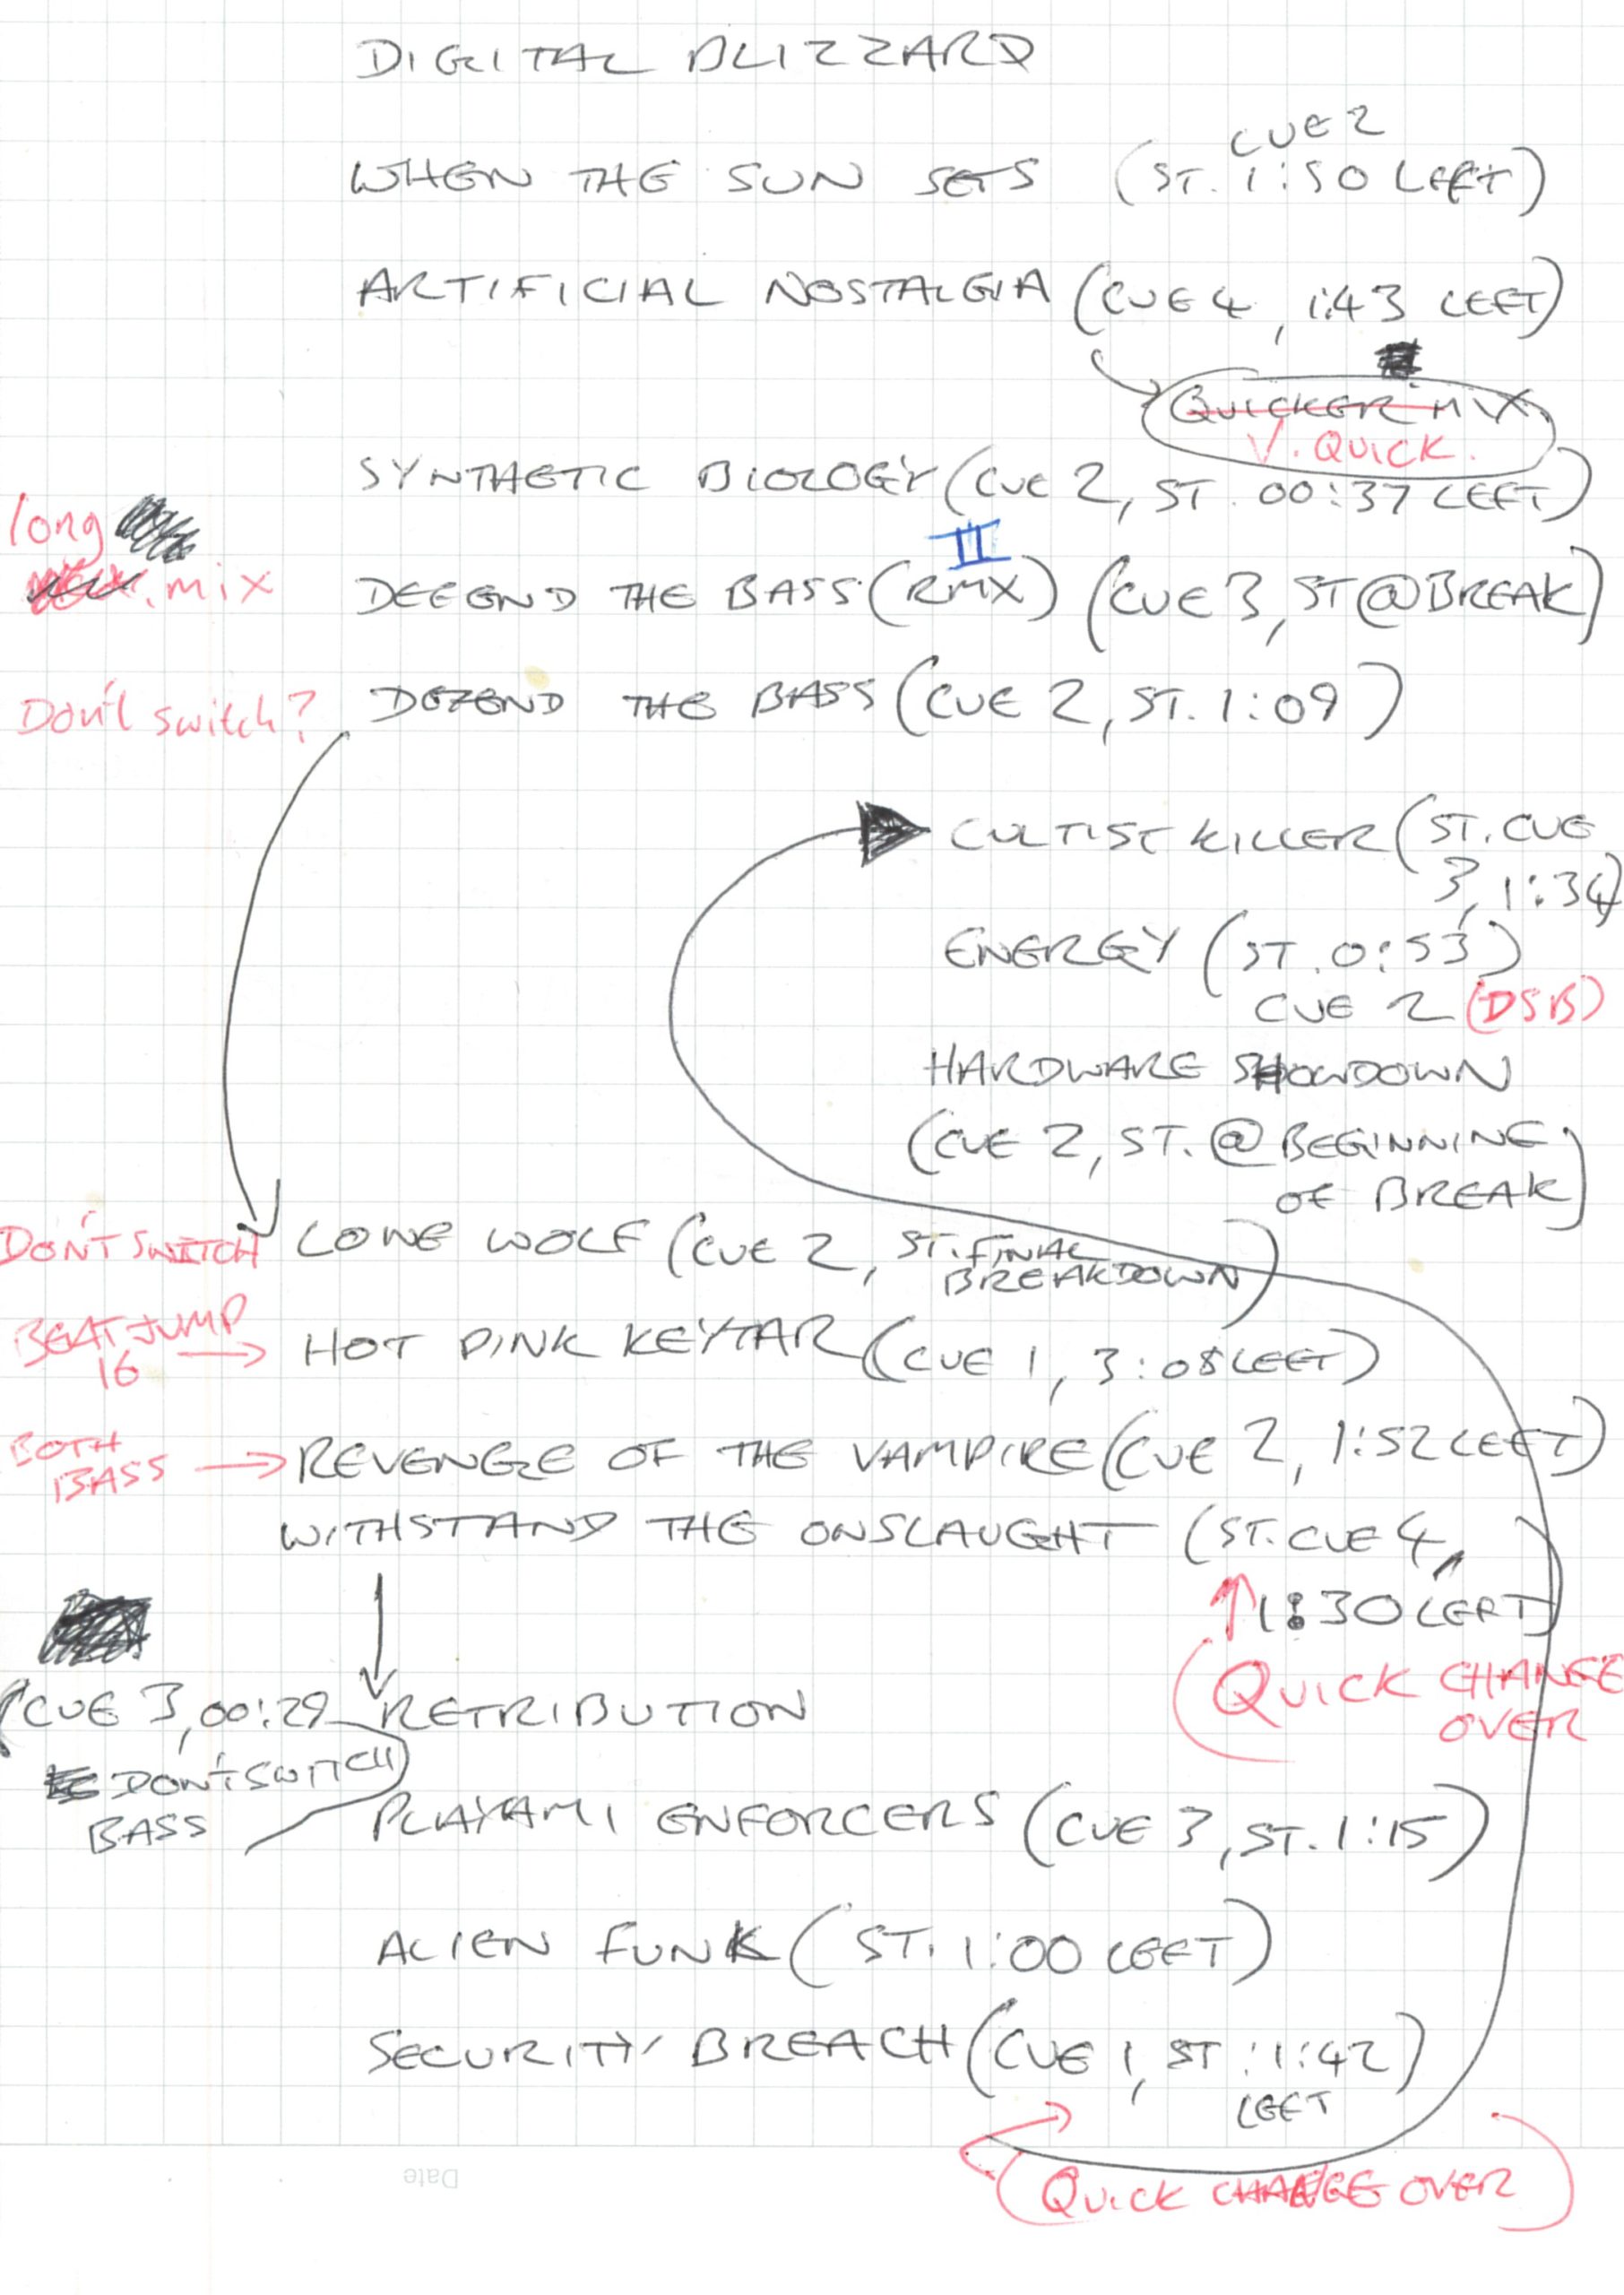 DIGITAL BLIZZARD
CUE 2
WHEN THE SUN SETS (ST. 1:50 LEFT)
ARTIFICIAL NOSTALGIA (CUE 4, 1:43 LEFT)
QUICKER MIX
V. QUICK.
SYNTHETIC BIOLOGY (CUE 2, ST. 00:37 LEFT)
III
long
mix
DEFEND THE BASS (RMX) (CUE 3, ST @ BREAK)
Don't switch?
DEFEND THE BASS (CUE 2, ST. 1:09)
CULTIST KILLER (ST. CUE
3, 1:34)
ENERGY (ST. 0:53)
CUE 2 (DSB)
HARDWARE SHOWDOWN
(CUE 2, ST. @ BEGINNING
OF BREAK)
DON'T SWITCH LONE WOLF (CUE 2, ST. FINAL
BREAKDOWN)
BEAT JUMP
16
HOT PINK KEYTAR (CUE 1, 3:08 LEFT)
BOTH
BASS
REVENGE OF THE VAMPIRE (CUE 2, 1:52 LEFT)
WITHSTAND THE ONSLAUGHT (ST. CUE 4,
1:30 LEFT)
QUICK CHANGE
OVER
(CUE 3, 00:29 RETRIBUTION
DON'T SWITCH
BASS
PLAYAMI ENFORCERS (CUE 3, ST. 1:15)
ALIEN FUNK (ST. 1:00 LEFT)
SECURITY BREACH (CUE 1, ST: 1:42)
LEFT
QUICK CHANGE OVER
Date